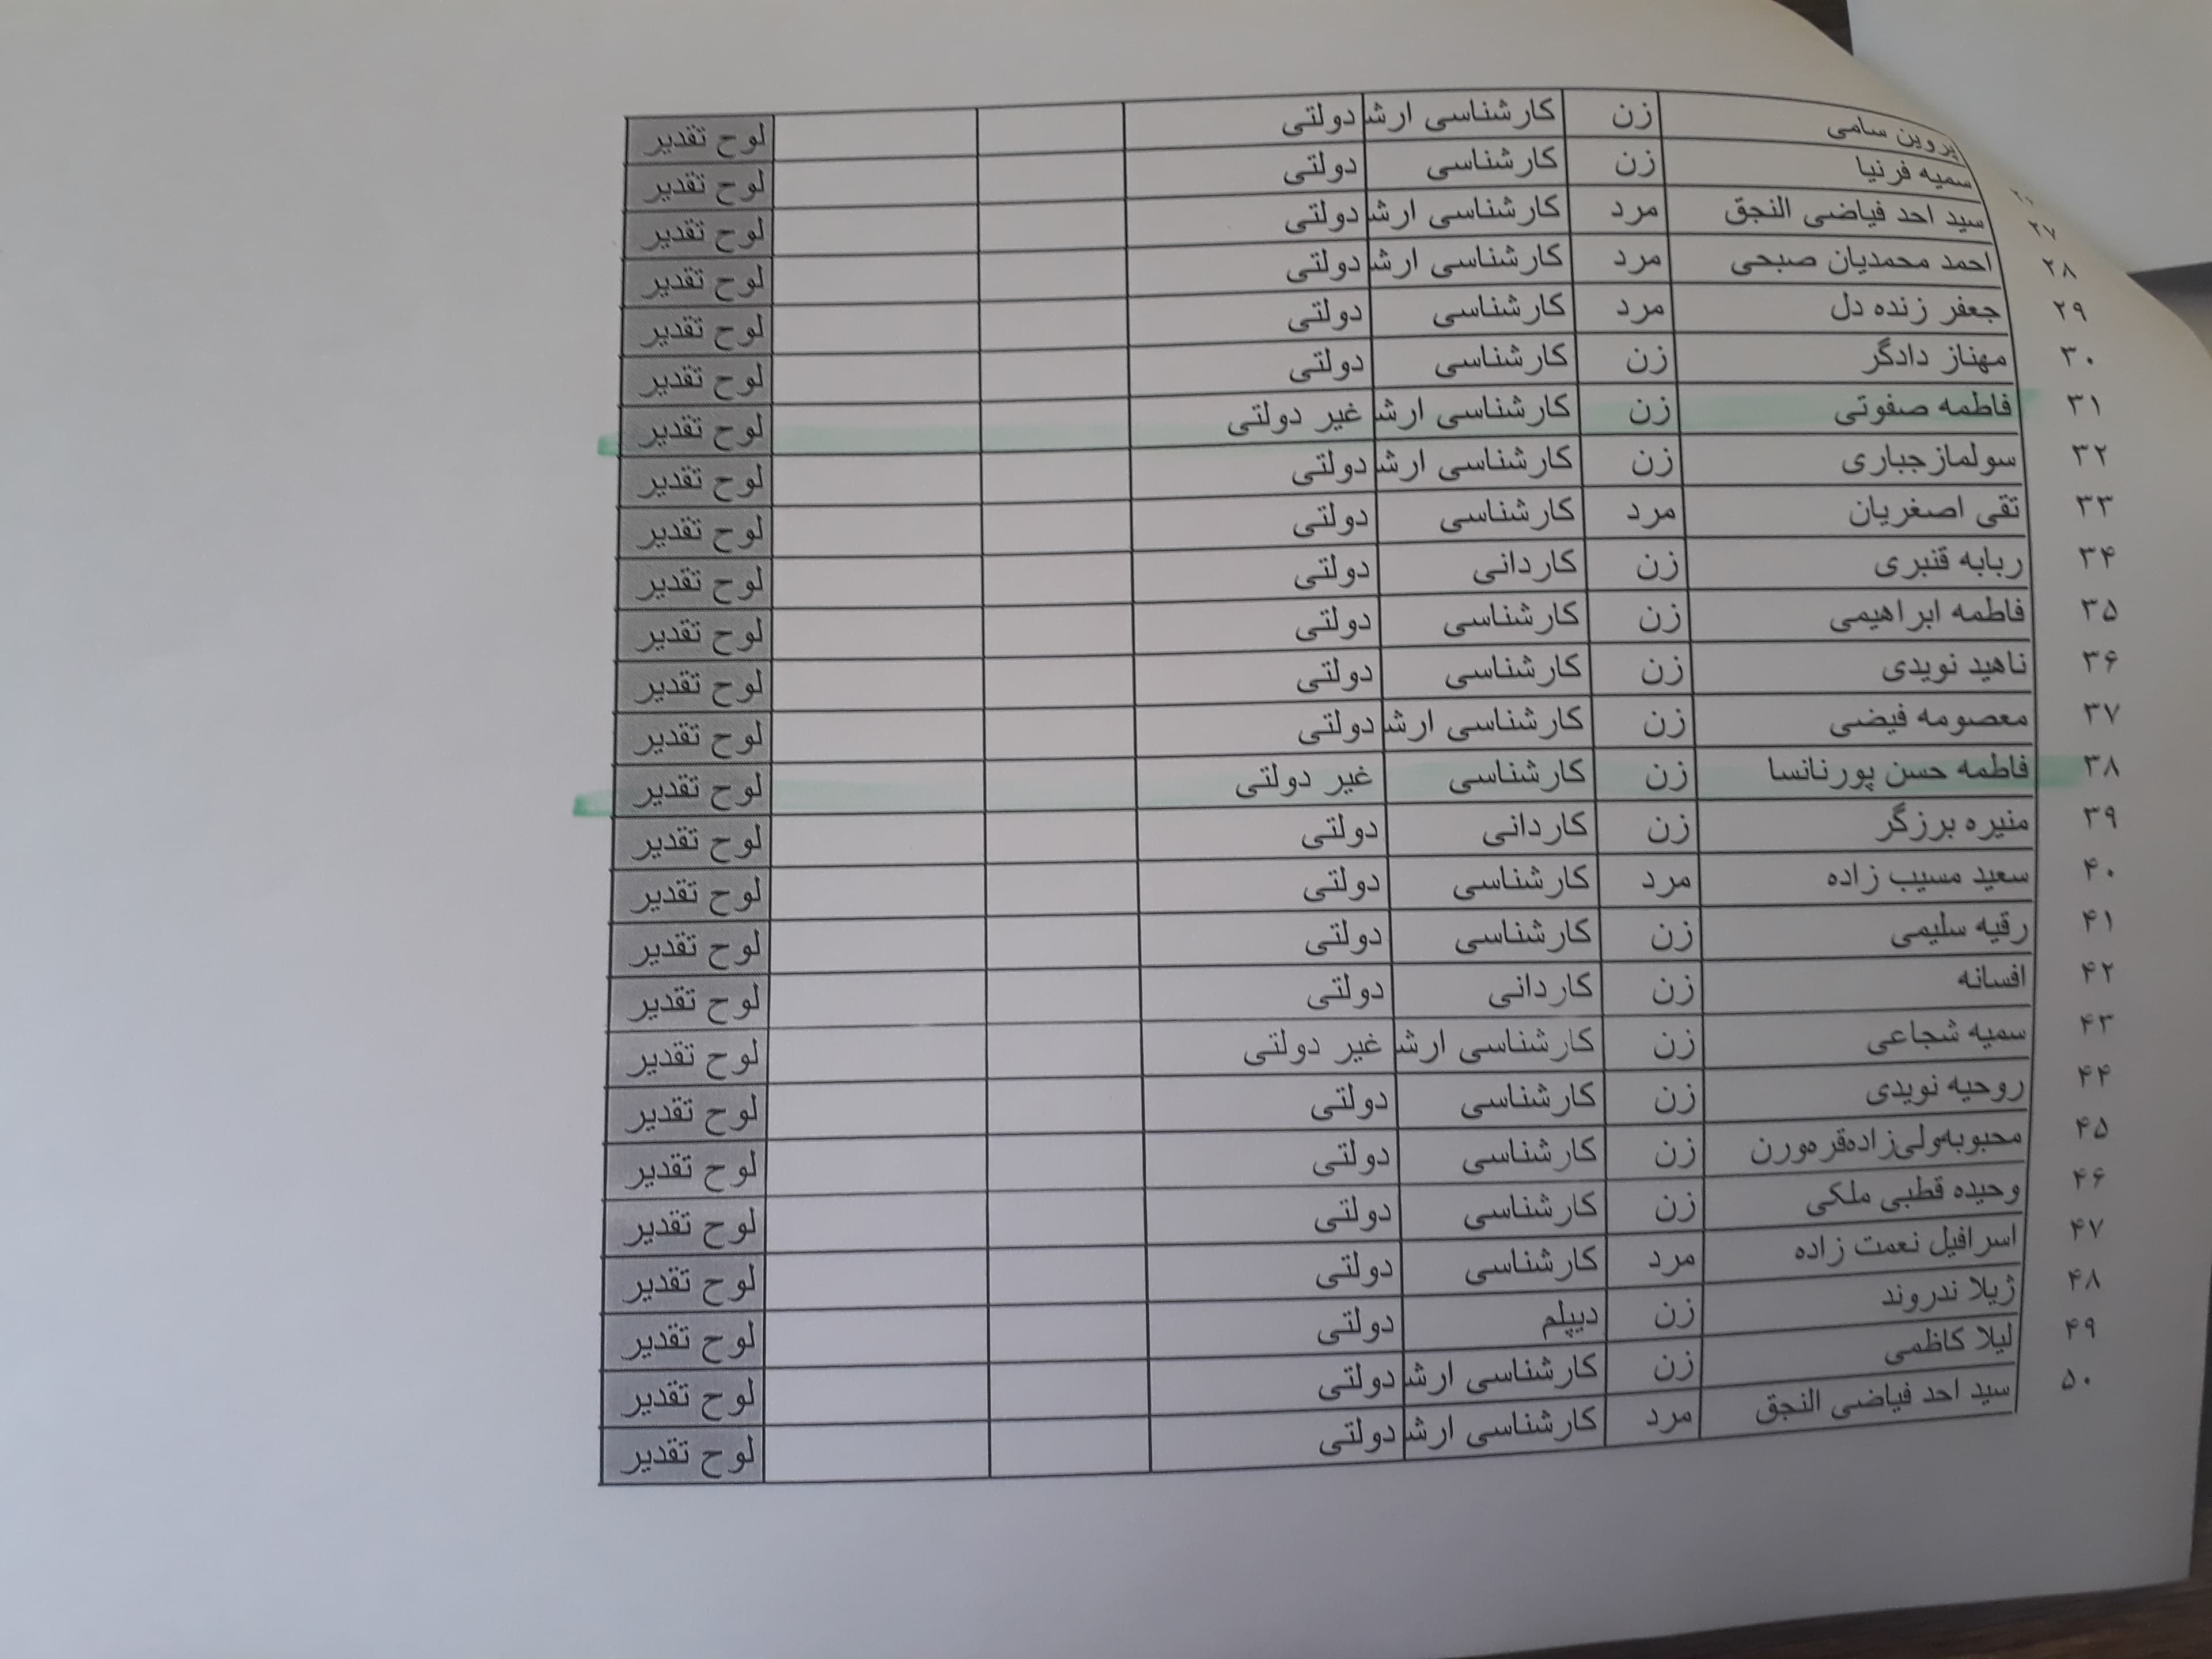 پروین سامی زن کارشناسی ارش دولتی لوح تقدیر
سمیه فرنیا زن کارشناسی دولتی لوح تقدیر
۲۷ سید احد فیاضی النجق مرد کارشناسی ارش دولتی لوح تقدیر
۲۸ احمد محمدیان صبحی مرد کارشناسی ارش دولتی لوح تقدیر
۲۹ جعفر زنده دل مرد کارشناسی دولتی لوح تقدیر
۳۰ مهناز دادگر زن کارشناسی دولتی لوح تقدیر
۳۱ فاطمه صفوتی زن کارشناسی ارش غیر دولتی لوح تقدیر
۳۲ سولمازجباری زن کارشناسی ارش دولتی لوح تقدیر
۳۳ تقی اصغریان مرد کارشناسی دولتی لوح تقدیر
۳۴ ربابه قنبری زن کاردانی دولتی لوح تقدیر
۳۵ فاطمه ابراهیمی زن کارشناسی دولتی لوح تقدیر
۳۶ ناهید نویدی زن کارشناسی دولتی لوح تقدیر
۳۷ معصومه فیضی زن کارشناسی ارش دولتی لوح تقدیر
۳۸ فاطمه حسن پورنانسا زن کارشناسی غیر دولتی لوح تقدیر
۳۹ منیره برزگر زن کاردانی دولتی لوح تقدیر
۴۰ سعید مسیب زاده مرد کارشناسی دولتی لوح تقدیر
۴۱ رقیه سلیمی زن کارشناسی دولتی لوح تقدیر
۴۲ افسانه زن کاردانی دولتی لوح تقدیر
۴۳ سمیه شجاعی زن کارشناسی ارش غیر دولتی لوح تقدیر
۴۴ روحیه نویدی زن کارشناسی دولتی لوح تقدیر
۴۵ محبوبه‌ولی‌زاده‌قره‌ورن زن کارشناسی دولتی لوح تقدیر
۴۶ وحیده قطبی ملکی زن کارشناسی دولتی لوح تقدیر
۴۷ اسرافیل نعمت زاده مرد کارشناسی دولتی لوح تقدیر
۴۸ ژیلا ندروند زن دیپلم دولتی لوح تقدیر
۴۹ لیلا کاظمی زن کارشناسی ارش دولتی لوح تقدیر
۵۰ سید احد فیاضی النجق مرد کارشناسی ارش دولتی لوح تقدیر